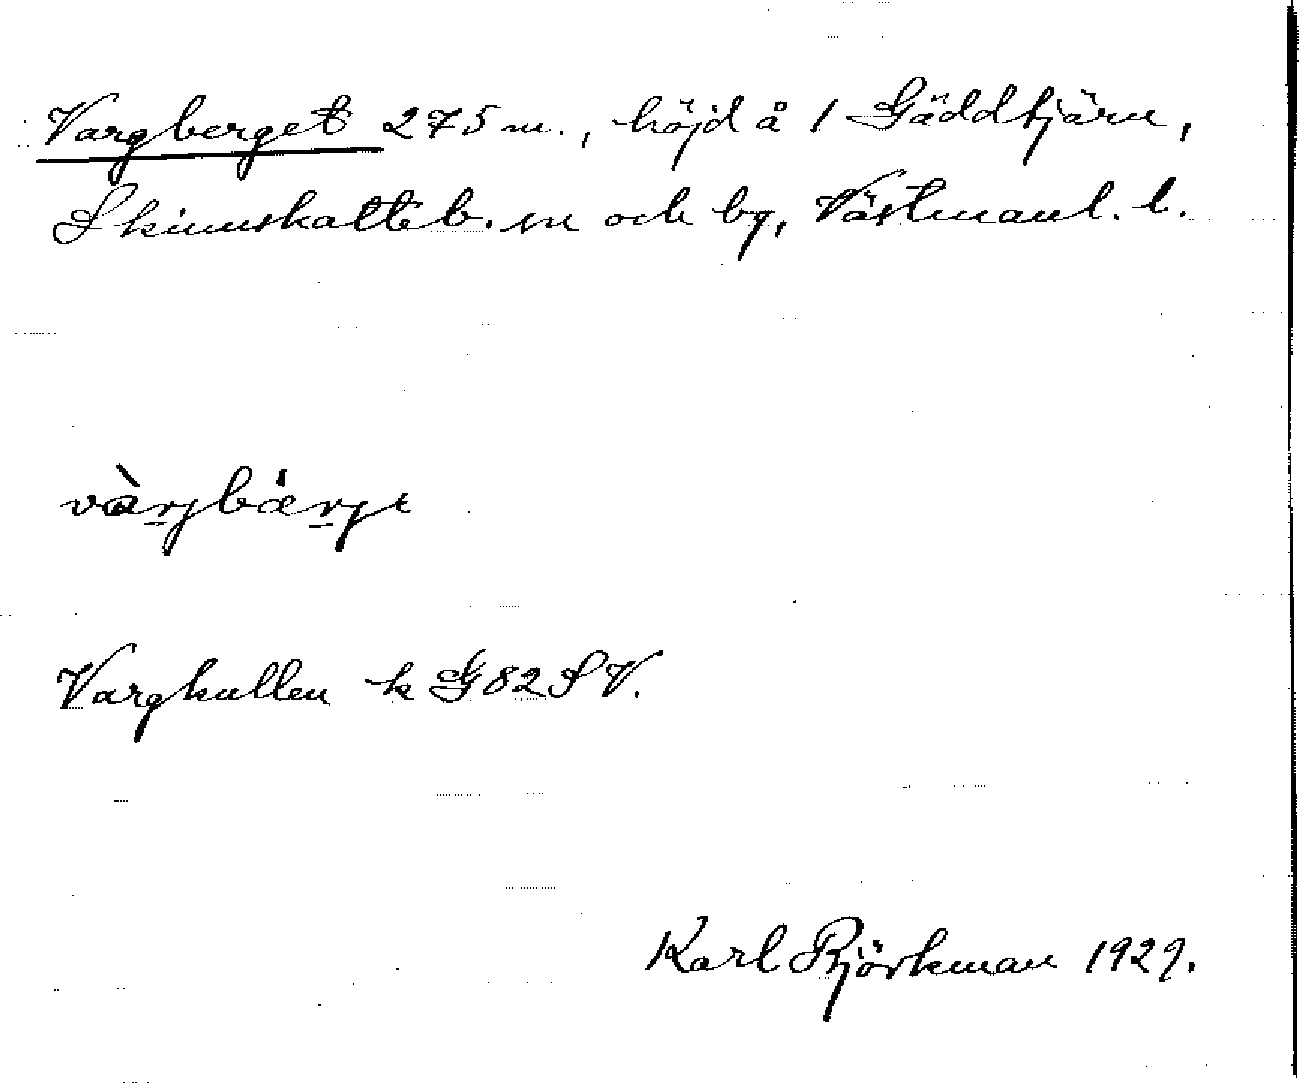 Vargberget 275 m., höjd å 1 Gäddtjärn,
Skinnskatteb. sn och by, Västmanl. l.
vàrjbærje
Vargkullen k G 82 SV.
Karl Björkman 1929.